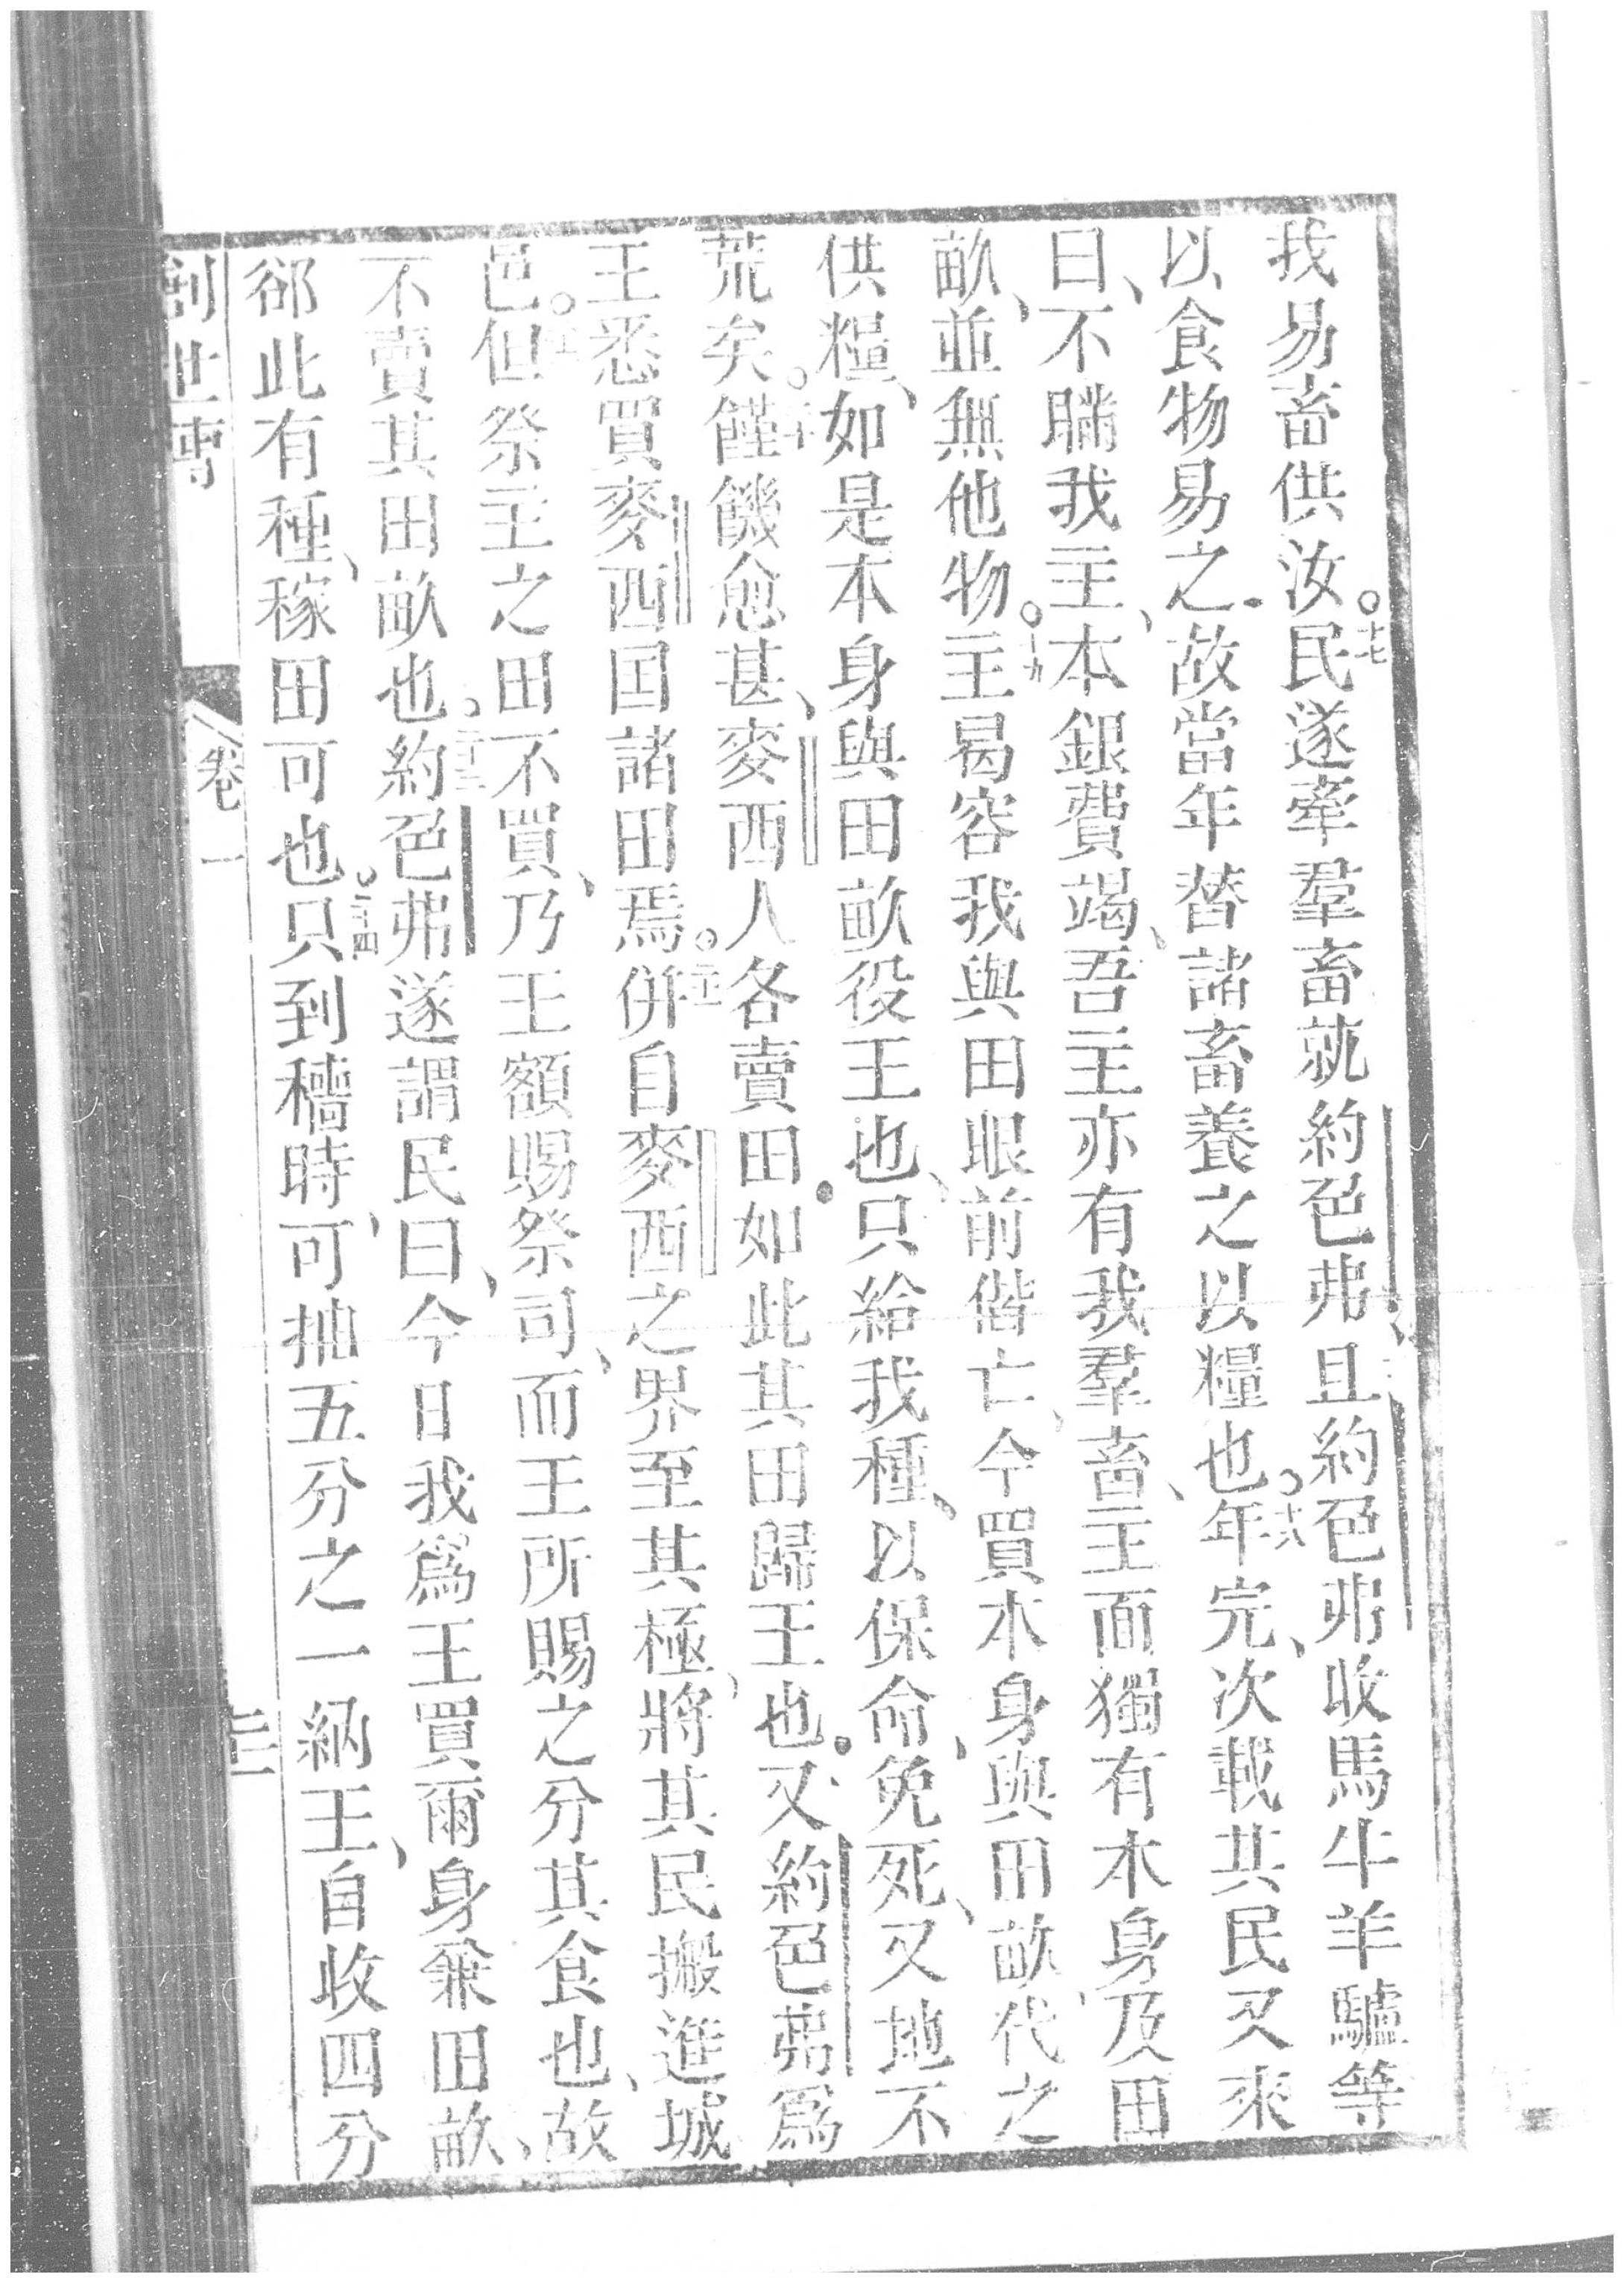 我易畜供汝。十七民遂牽羣畜就約色弗、且約色弗收馬牛羊驢等
以食物易之。故當年替諸畜養之以糧也。十八年完、次載其民又來
曰、不瞞我主、本銀費竭、吾主亦有我羣畜、王面獨有本身及田
畝、並無他物。十九王曷容我與田眼前偕亡、今買本身與田畝、代之
供糧、如是本身與田畝役王也、只給我種、以保命、免死、又地不
荒矣。二十饉饑愈甚、麥西人各賣田。如此其田歸王也。又約色弗為
王悉買麥西国諸田焉。二一併自麥西之界至其極、將其民搬進城
邑。二二但祭主之田不買、乃王額賜祭司、而王所賜之分其食也、故
不賣其田畝也。二十三約色弗遂謂民曰、今日我為王買爾身兼田畝、
郤此有種、稼田可也。二十四只到穡時、可抽五分之一納王、自收四分
創世傳
卷一